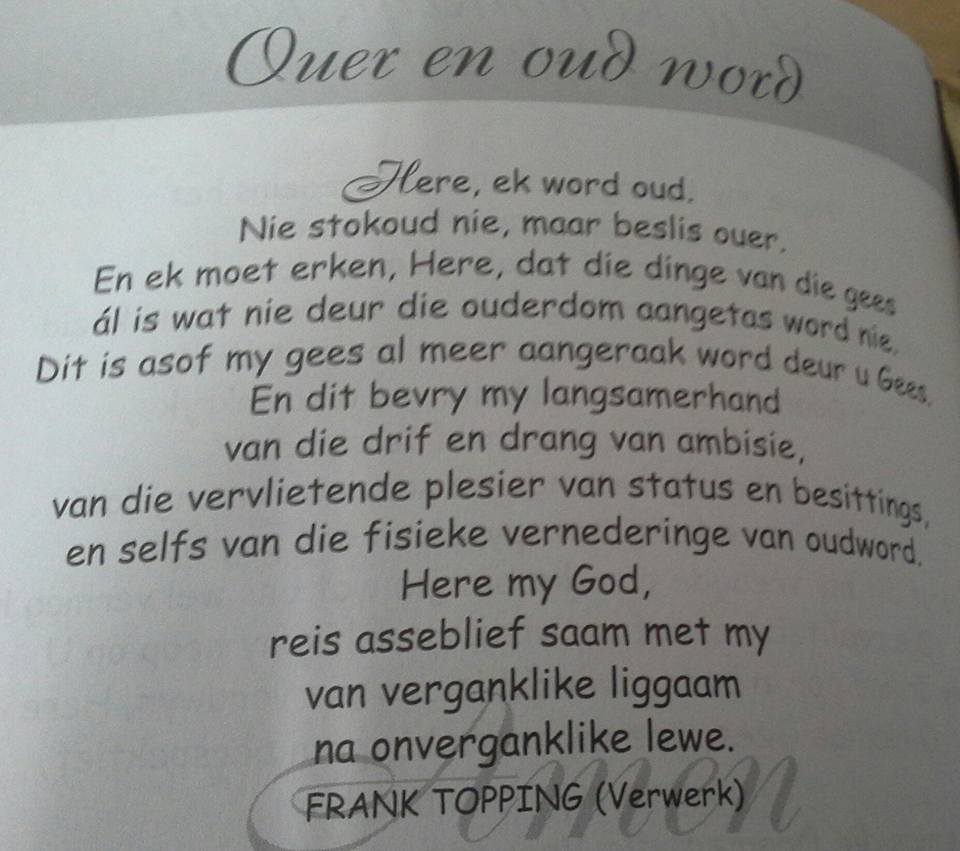 Ouer en oud word
Here, ek word oud.
Nie stokoud nie, maar beslis ouer.
En ek moet erken, Here, dat die dinge van die gees
ál is wat nie deur die ouderdom aangetas word nie.
Dit is asof my gees al meer aangeraak word deur u Gees.
En dit bevry my langsamerhand
van die drif en drang van ambisie,
van die vervlietende plesier van status en besittings,
en selfs van die fisieke vernederinge van oudword.
Here my God,
reis asseblief saam met my
van verganklike liggaam
na onverganklike lewe.
FRANK TOPPING (Verwerk)
Amen